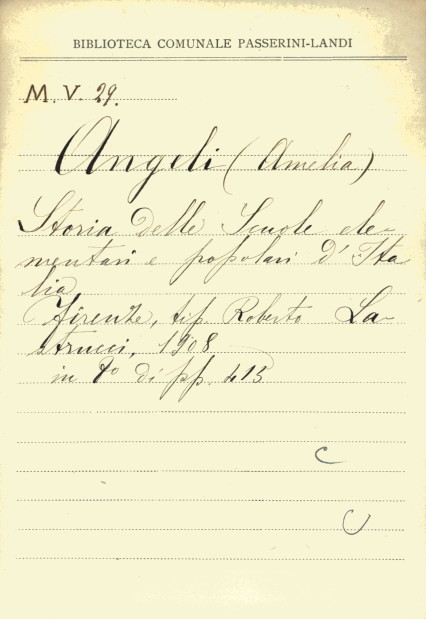 BIBLIOTECA COMUNALE PASSERINI-LANDI
M. V. 29.
Angeli (Amelia)
Storia delle Scuole ele-
mentari e popolari d'Ita
lia
Firenze, tip. Roberto La-
strucci, 1908
in 8° di pp. 415
C
C